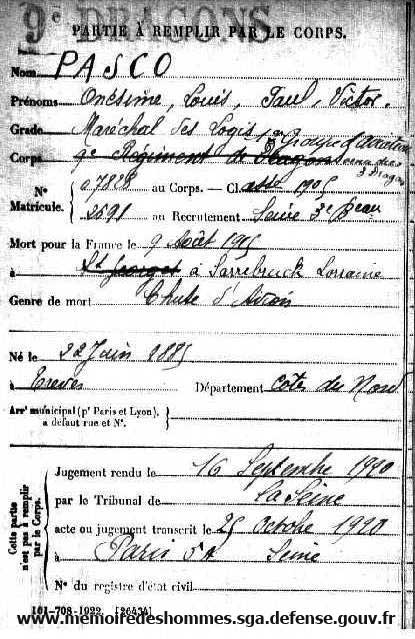 9e DRAGONS
PARTIE À REMPLIR PAR LE CORPS.
Nom PASCO
Prénoms Onésime, Louis, Paul, Victor.
Grade Maréchal des Logis
Corps 9e Régiment de Dragons 1er Groupe d'Aviation
No Matricule. 07828 au Corps. — Classe 1905
2591 au Recrutement Seine 3e Beau
Mort pour la France le 9 Août 1915
à St Georges à Sarrebruck Lorraine
Genre de mort Chute d'Avion
Né le 22 Juin 1885
à Département Côtes du Nord
Arrt municipal (pr Paris et Lyon),
à défaut rue et No.
Cette partie n'est pas à remplir par le Corps.
Jugement rendu le 16 Septembre 1920
par le Tribunal de La Seine
acte ou jugement transcrit le 25 Octobre 1920
à Paris 5e Seine
No du registre d'état civil
101-708-1922. [26434]
www.memoiredeshommes.sga.defense.gouv.fr